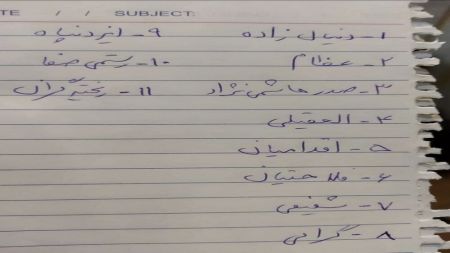 TE / / SUBJECT:
۱- دنیال زاده
۲- عظام
۳- صدرهاشمی نژاد
۴- العقیلی
۵- اقدامیان
۶- فلاحتیان
۷- شفیعی
۸- گرامی
۹- ایزدپناه
۱۰- رستمی صفا
۱۱- ریخته‌گران